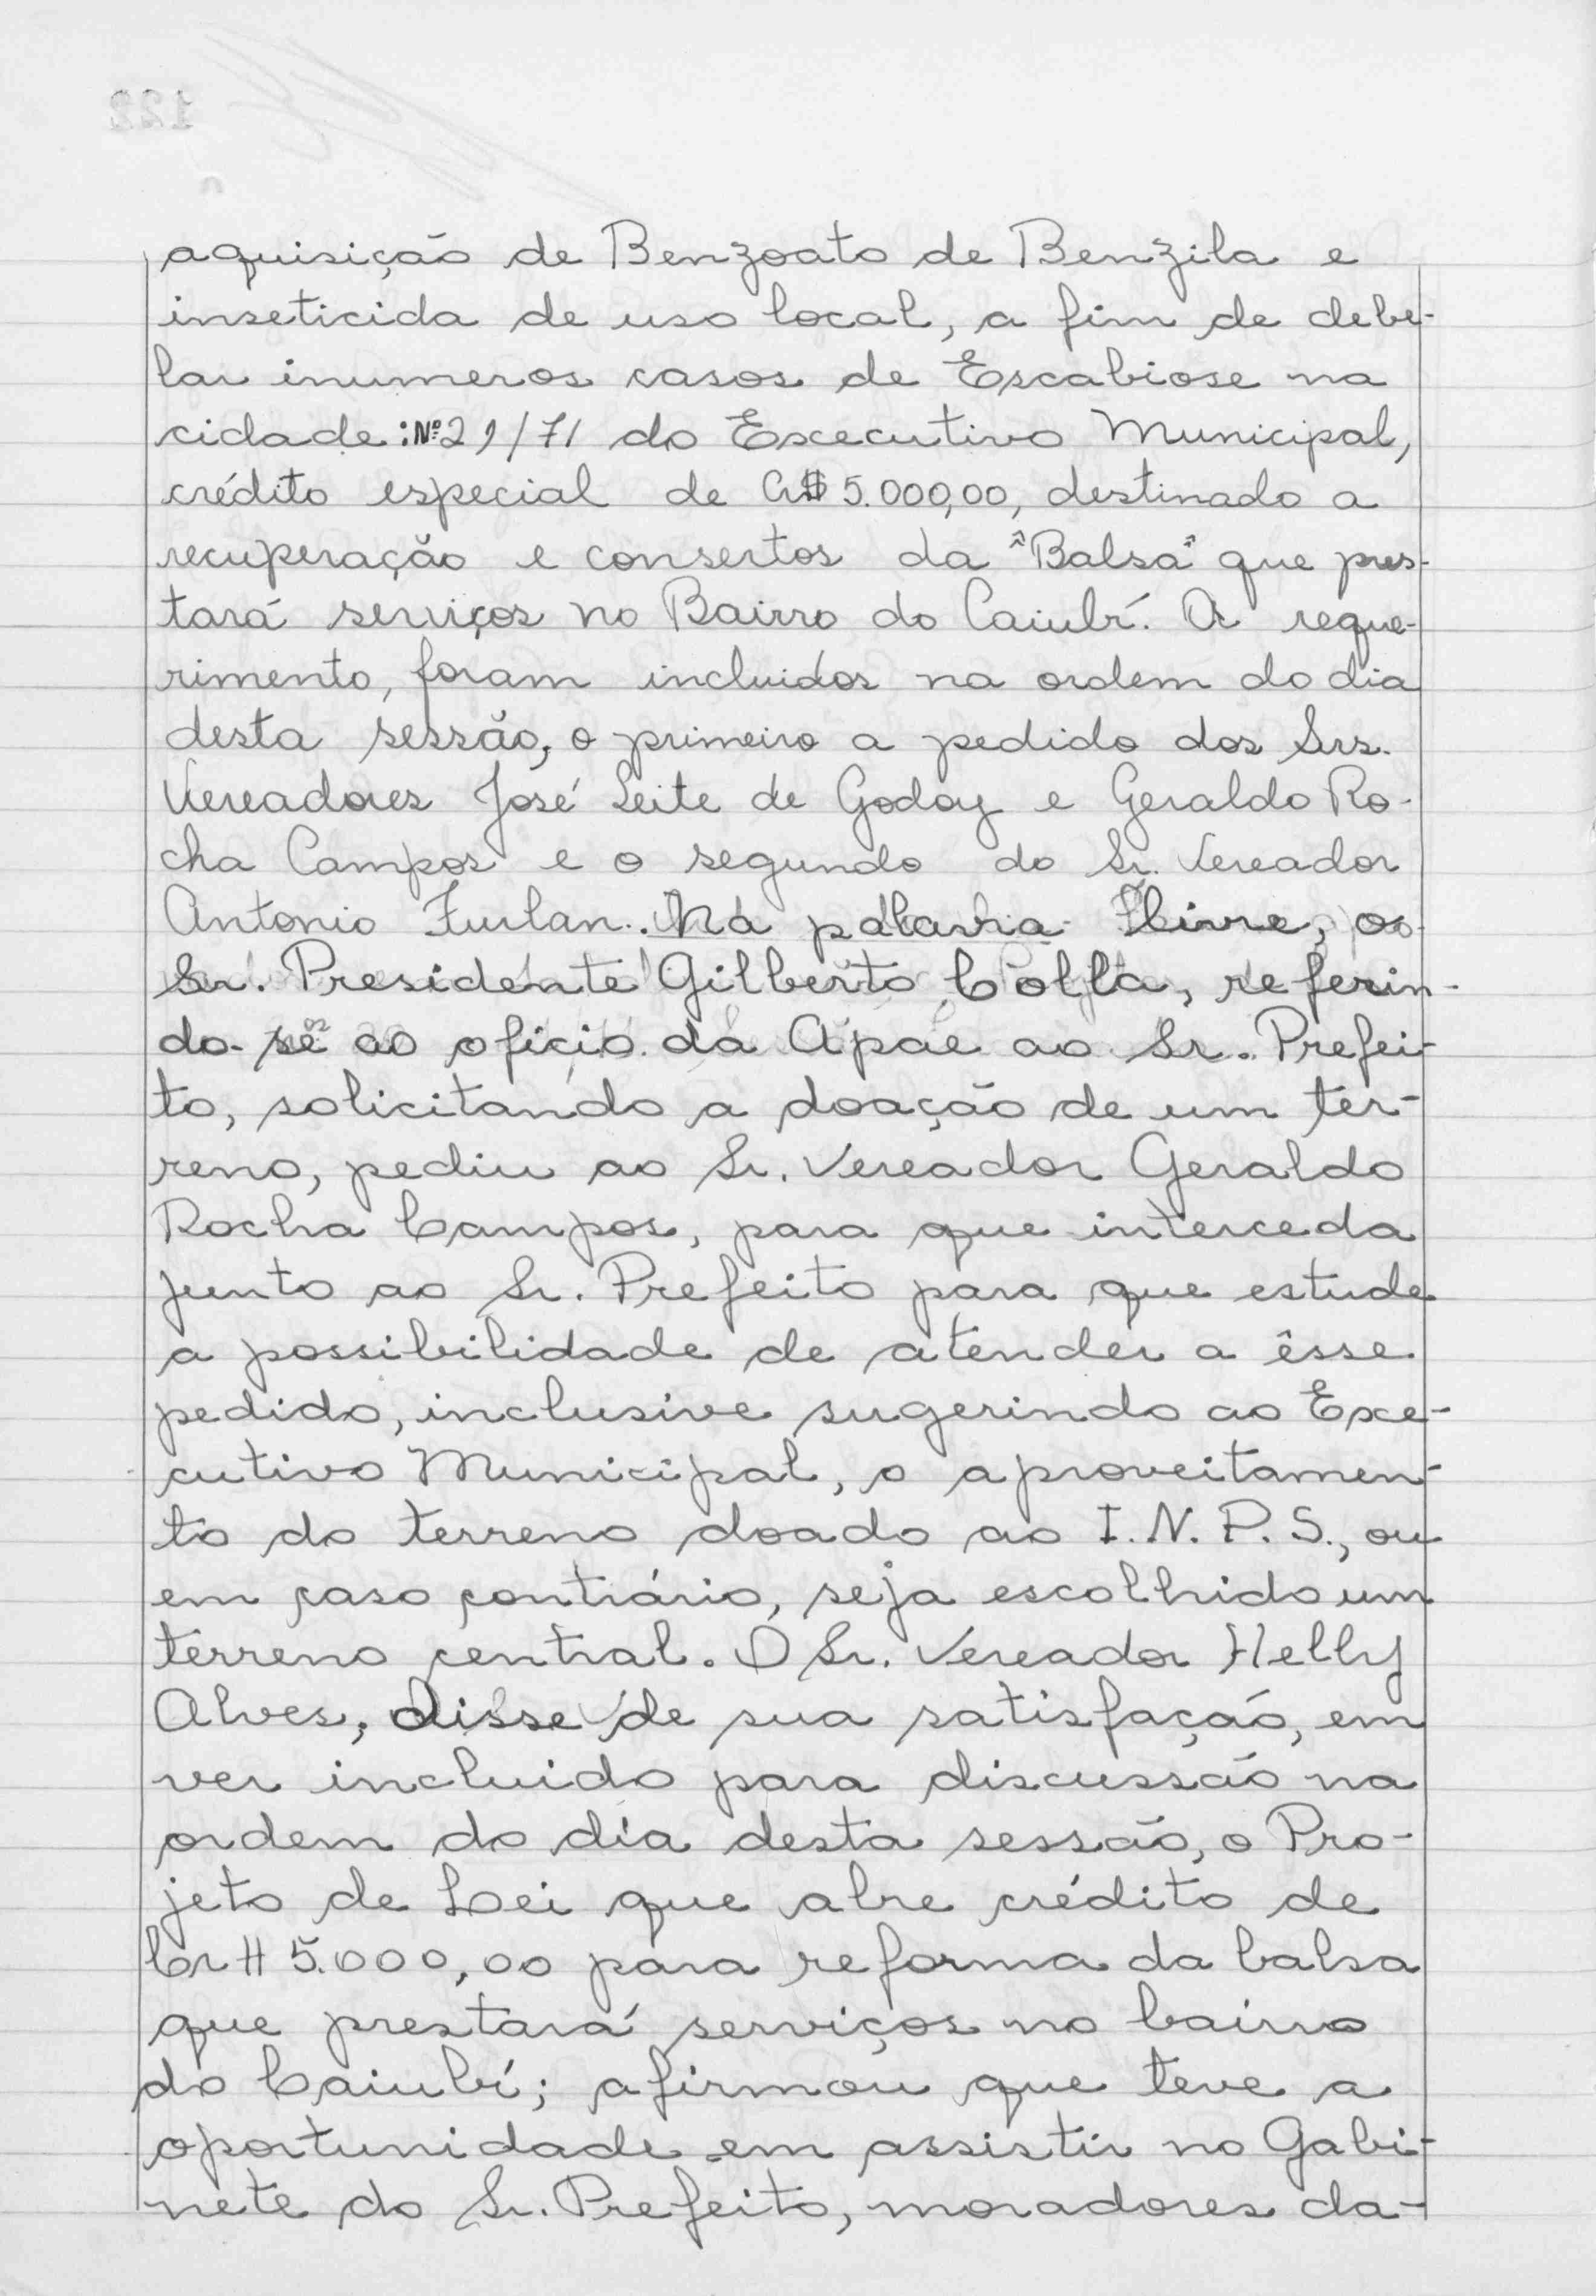 122
aquisição de Benzoato de Benzila e
inseticida de uso local, a fim de debe-
lar inumeros casos de Escabiose na
cidade: Nº 21/71 do Executivo Municipal,
crédito especial de Cr$ 5.000,00, destinado a
recuperação e consertos da "Balsa" que pres-
tará serviços no Bairro do Caiubí. A reque-
rimento, foram incluidos na ordem do dia
desta sessão, o primeiro a pedido dos Srs.
Vereadores José Leite de Godoy e Geraldo Ro-
cha Campos e o segundo do Sr. Vereador
Antonio Furlan. Na palavra livre, o
Sr. Presidente Gilberto Colla, referin-
do-se ao oficio da Apae ao Sr. Prefei-
to, solicitando a doação de um ter-
reno, pediu ao Sr. Vereador Geraldo
Rocha Campos, para que interceda
junto ao Sr. Prefeito para que estude
a possibilidade de atender a êsse
pedido, inclusive sugerindo ao Exe-
cutivo Municipal, o aproveitamen-
to do terreno doado ao I.N.P.S., ou
em caso contrário, seja escolhido um
terreno central. O Sr. Vereador Helly
Alves, disse de sua satisfação, em
ver incluido para discussão na
ordem do dia desta sessão, o Pro-
jeto de Lei que abre crédito de
Cr$ 5.000,00 para reforma da balsa
que prestará serviços no bairro
do Caiubí; afirmou que teve a
oportunidade em assistir no Gabi-
nete do Sr. Prefeito, moradores da-